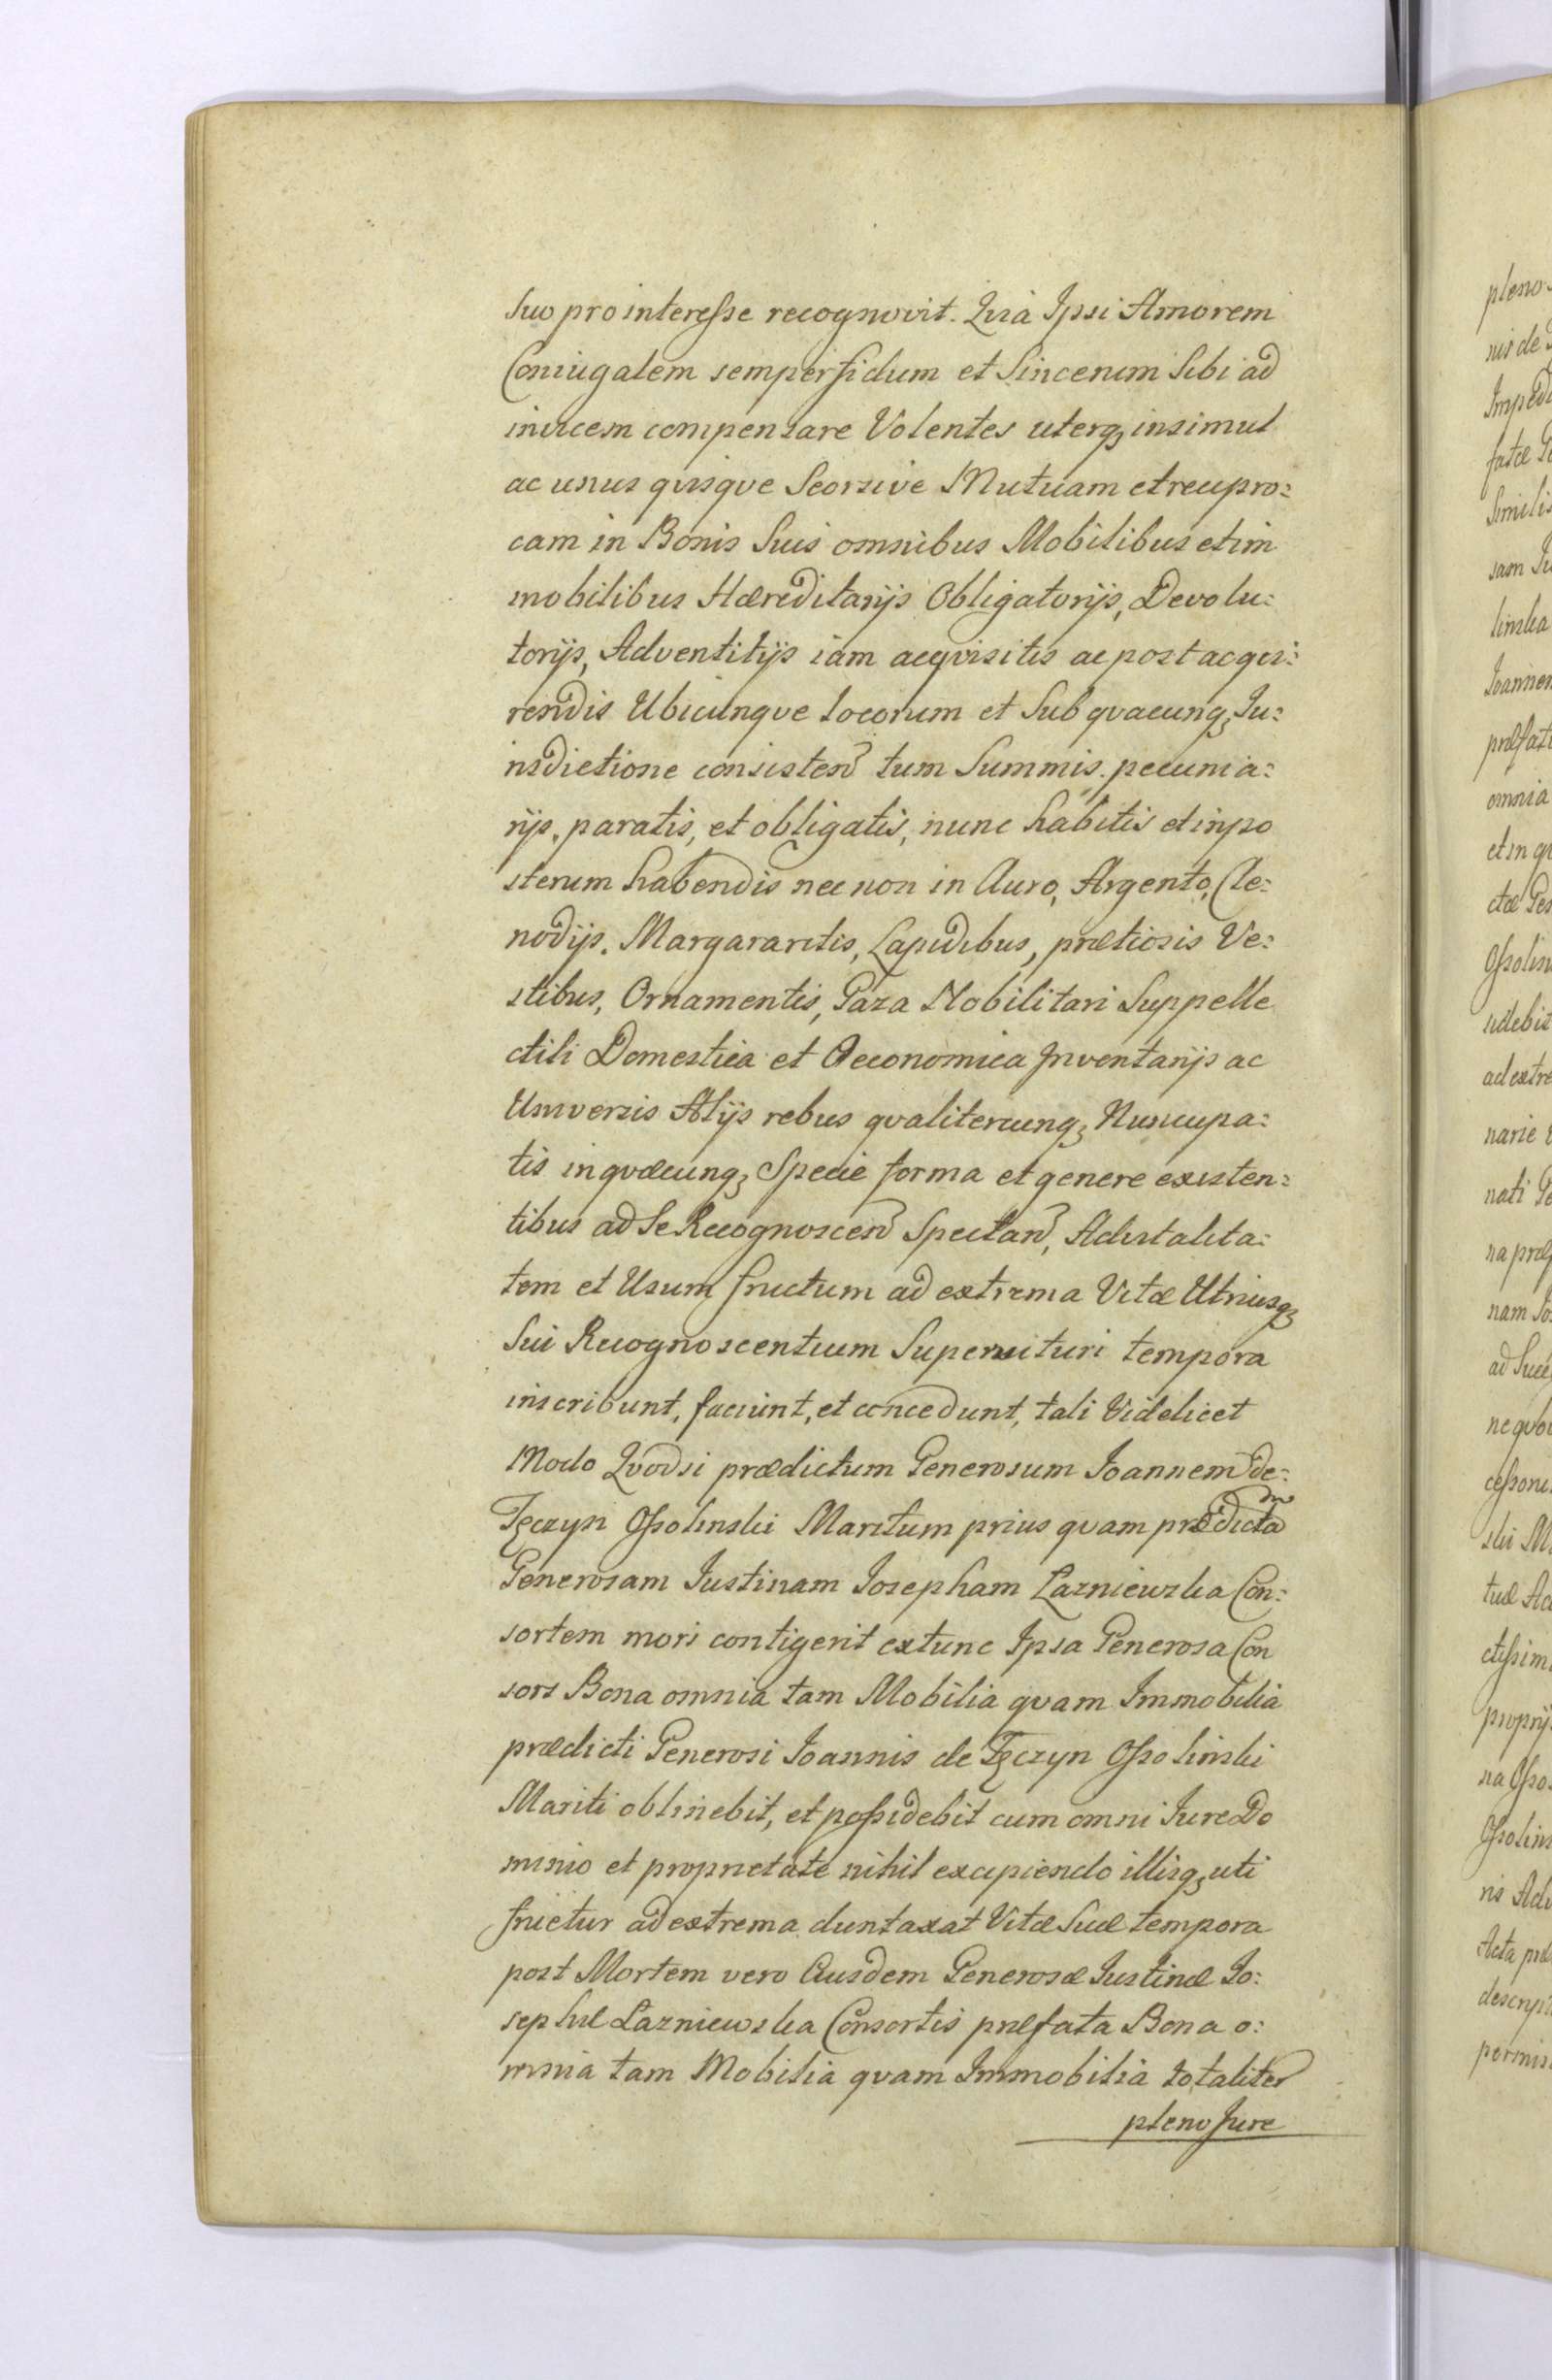 Suo pro interesse recognovit. Qvia Ipsi Amorem
Coniugalem semper fidum et Sincerum Sibi ad
invicem compensare Volentes uterq₃ insimul
ac unus qvisqve Seorsive Mutuam et recipro:
cam in Bonis Suis omnibus Mobilibus et im
mobilibus Hæreditarijs Obligatorijs, Devolu:
torijs, Adventitijs iam acqvisitis ac post acqvi:
rendis Ubicunqve locorum et Sub qvacunq₃ Ju:
risdictione consisten tum Summis pecunia:
rijs, paratis, et obligatis, nunc habitis et in po
sterum habendis nec non in Auro, Argento, Cle:
nodijs, Margararitis, Lapidibus, prætiosis Ve:
stibus, Ornamentis, Gaza Nobilitari Suppelle
ctili Domestica et Oeconomica Inventarijs ac
Universis Alijs rebus qvalitercunq₃ Nuncupa:
tis in qvacunq₃ Specie forma et genere existen:
tibus ad Se Recognoscen Spectan, Advitalita:
tem et Usum fructum ad extrema Vitæ Utriusq₃
Sui Recognoscentium Supervituri tempora
inscribunt, faciunt, et concedunt, tali Videlicet
Modo Qvodsi prædictum Generosum Joannem de:
Tęczyn Ossolinski Maritum prius qvam prædictam
Generosam Iustinam Iosepham Lazniewska Con:
sortem mori contigerit extunc Ipsa Generosa Con
sors Bona omnia tam Mobilia qvam Immobilia
prædicti Generosi Ioannis de Tęczyn Ossolinski
Mariti obtinebit, et possidebit cum omni Iure Do
minio et proprietate nihil excipiendo illisq₃ uti
fruetur ad extrema duntaxat Vitæ Suæ tempora
post Mortem vero Eiusdem Generosæ Iustinæ Io:
sephæ Lazniewska Consortis præfata Bona o:
mnia tam Mobilia qvam Immobilia totaliter
pleno Jure
pleno
nis de
fatæ
sam
linska
Joannem
præfati
omnia
et in
ctæ
Ossolin
sidebit
ad extre
narie
nati
nam
ad
ne
cessori
ski
tuæ
ctissim
proprij
na Osso
Ossolins
ris
Acta
descrip
permis